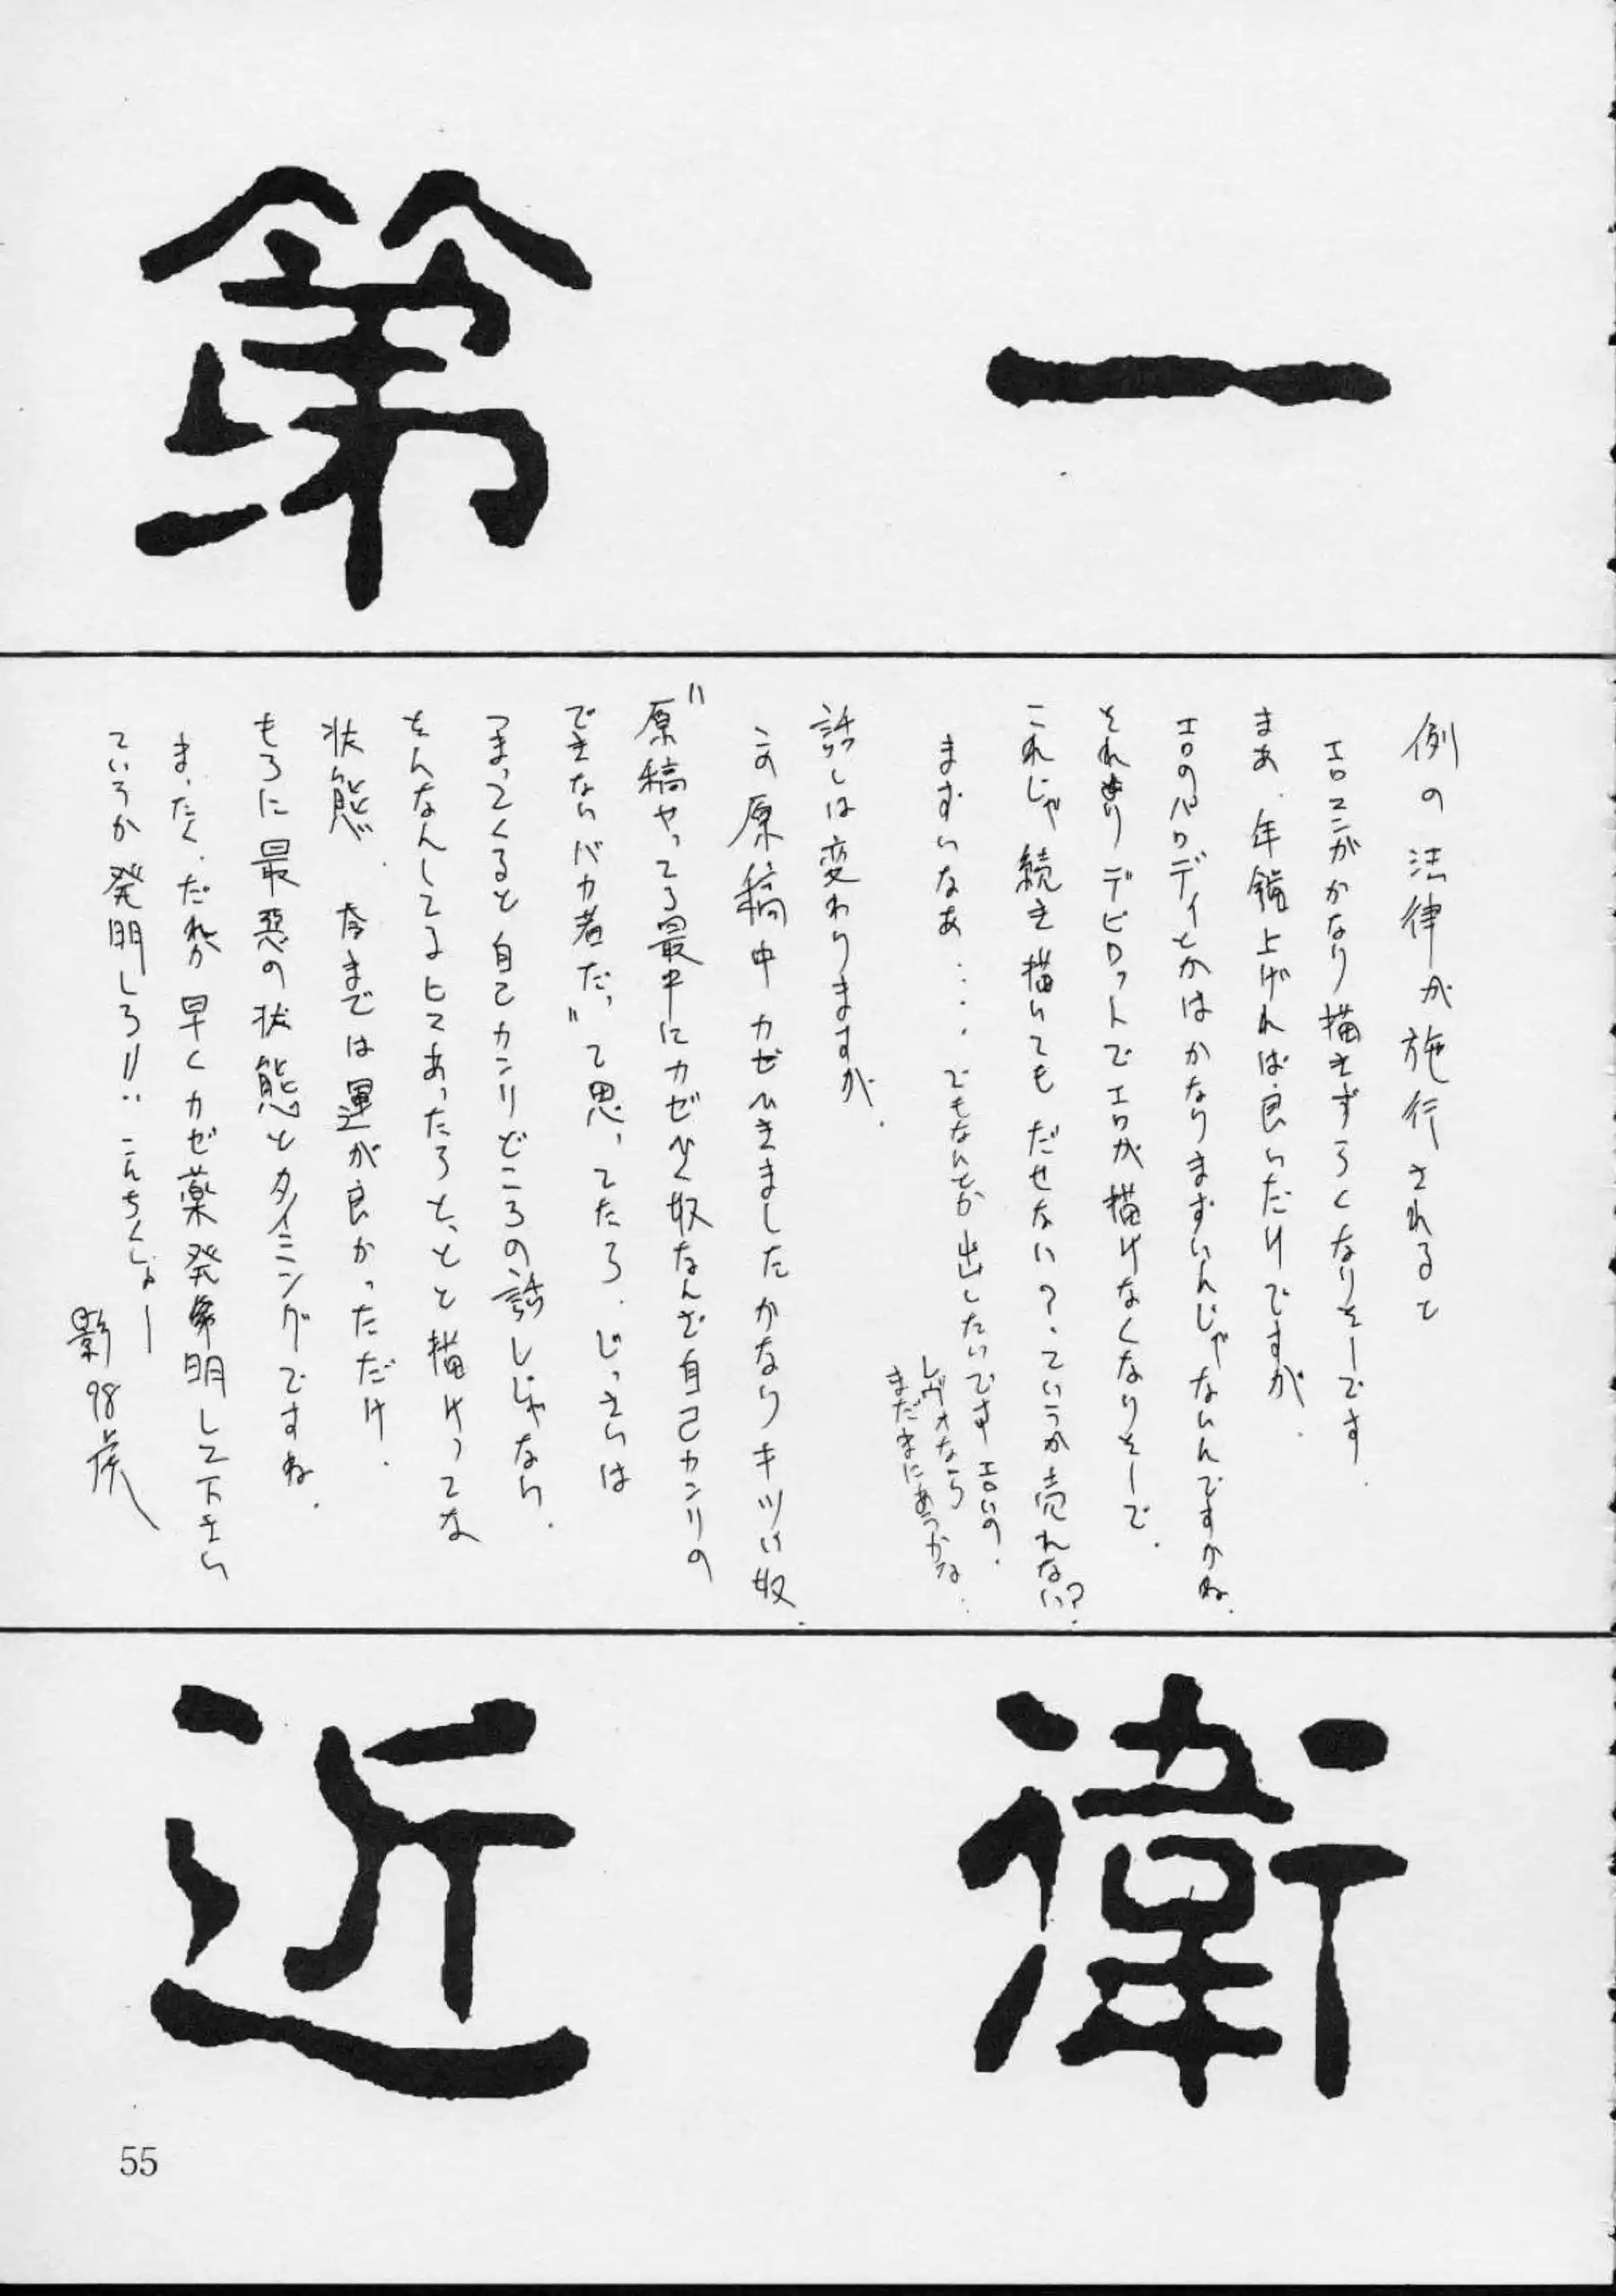 第一
例の法律が施行されると
エロマンガかなり描きずらくなりそーです.
まあ、年齢上げれば良いだけですが.
エロのパロディとかはかなりまずいんじゃないんですかね.
それよりデビロットでエロが描けなくなりそーで.
これじゃ続き描いてもだせない?.ていうか売れない?.
まずいなあ....でもなんとか出したいですエロいの.
しヴォなら
まだまにあうかな..
話しは変わりますが.
この原稿中カゼひきましたかなりキツい奴.
"原稿やってる最中にカゼひく奴なんざ自己カンリの
できないバカ者だ"って思ってたろ.じっさいは
つまってくると自己カンリどころの話しじゃない.
そんなんしてるヒマあったらとっとと描けってな
状態.今までは運が良かっただけ.
もろに最悪の状態とタイミングですね.
まったく.だれか早くカゼ薬発明して下さい
ていうか発明しろ!!..こんちくしょー
影98炭
近衛
55